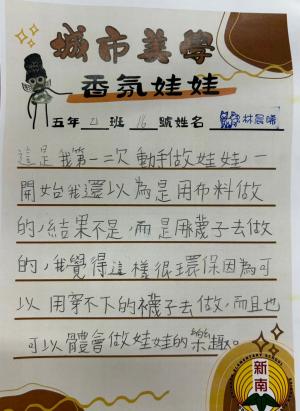 城市美學
香氛娃娃
五年 21 班 16 號姓名 林晨晞
這是我第一二次動手做娃娃,一
開始我還以為是用布料做
的,結果不是,而是用襪子去做
的,我覺得這樣很環保因為可
以用穿不下的襪子去做,而且也
可以體會做娃娃的樂趣。
ELEMENTARY SCHOOL
新南